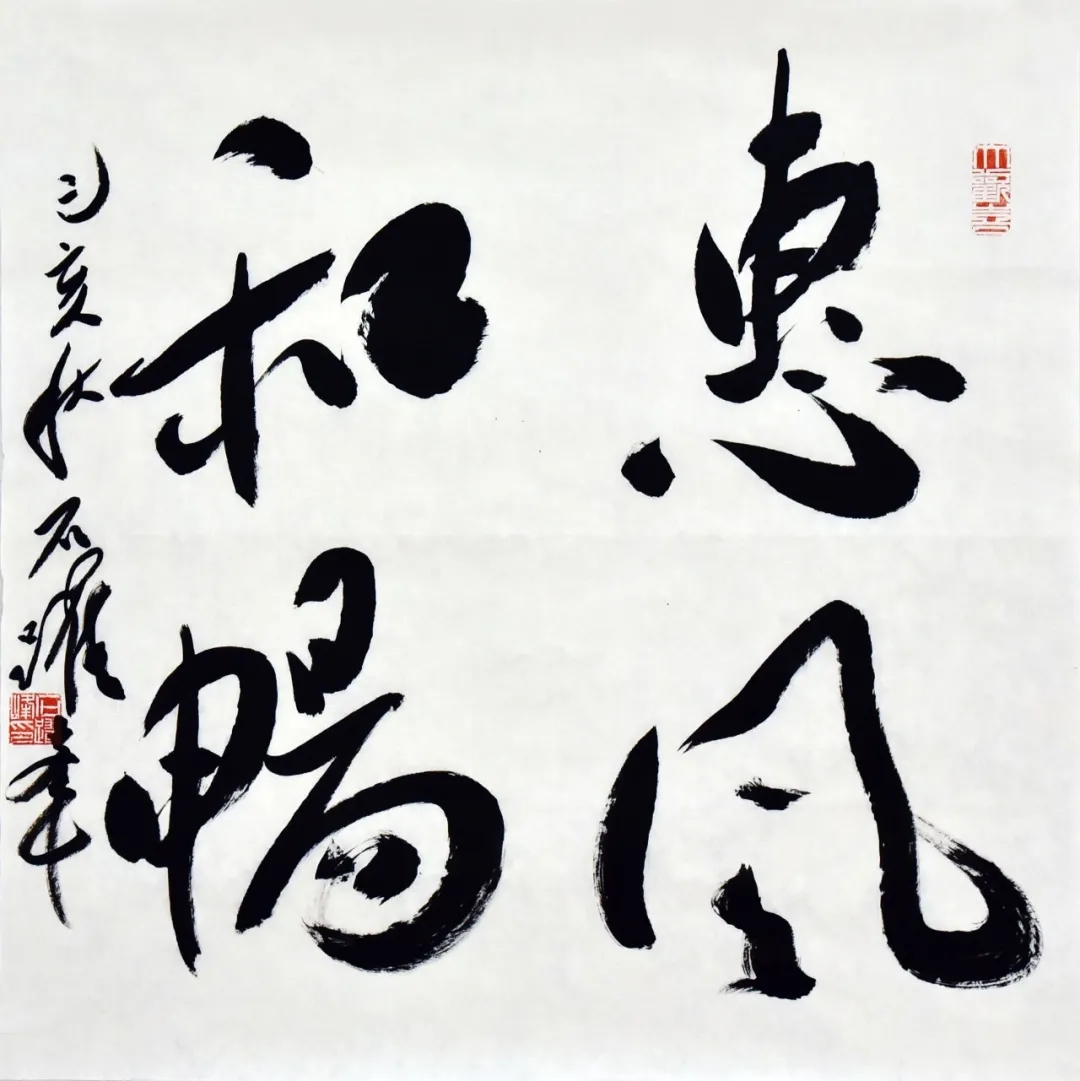 惠風
和暢
己亥秋石躍峯